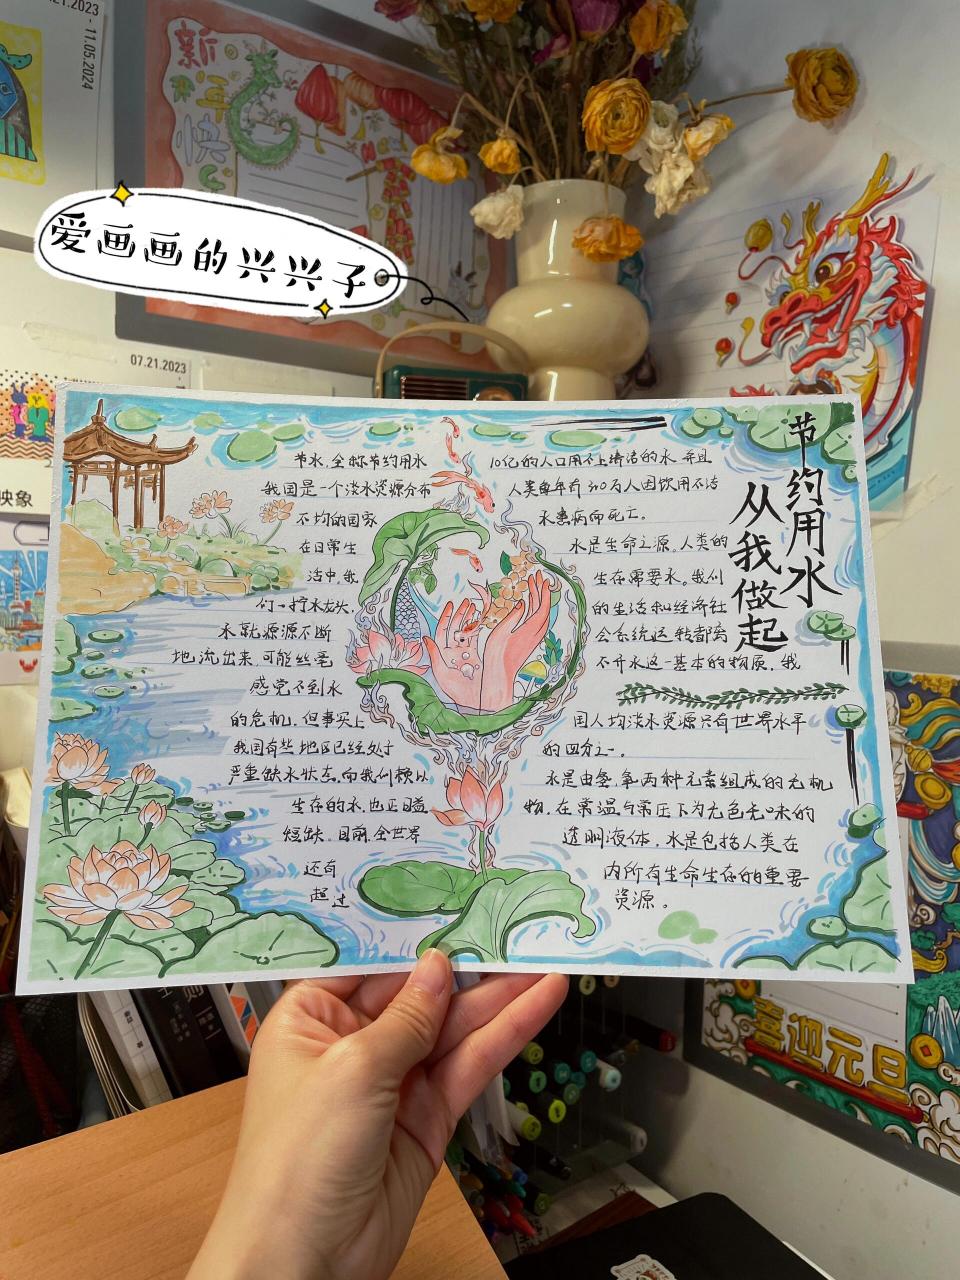 11.05.2024
新年快乐
爱画画的兴兴子
07.21.2023
映象
节约用水
从我做起
节水,全称节约用水
我国是一个淡水资源分布
不均的国家
在日常生
活中,我
们一拧水龙头,
水就源源不断
地流出来,可能丝毫
感觉不到水
的危机,但事实上
我国有些地区已经处于
严重缺水状态,而我们赖以
生存的水,也正日益
短缺,目前,全世界
还有
超过
10亿的人口用不上清洁的水,并且
人类每年有310万人因饮用不洁
水患病而死亡。
水是生命之源,人类的
生存需要水。我们
的生活和经济社
会系统运转都离
不开水这一基本的物质,我
国人均淡水资源只有世界水平
的四分之一。
水是由氢、氧两种元素组成的无机
物,在常温与常压下为无色无味的
透明液体,水是包括人类在
内所有生命生存的重要
资源。
喜迎元旦